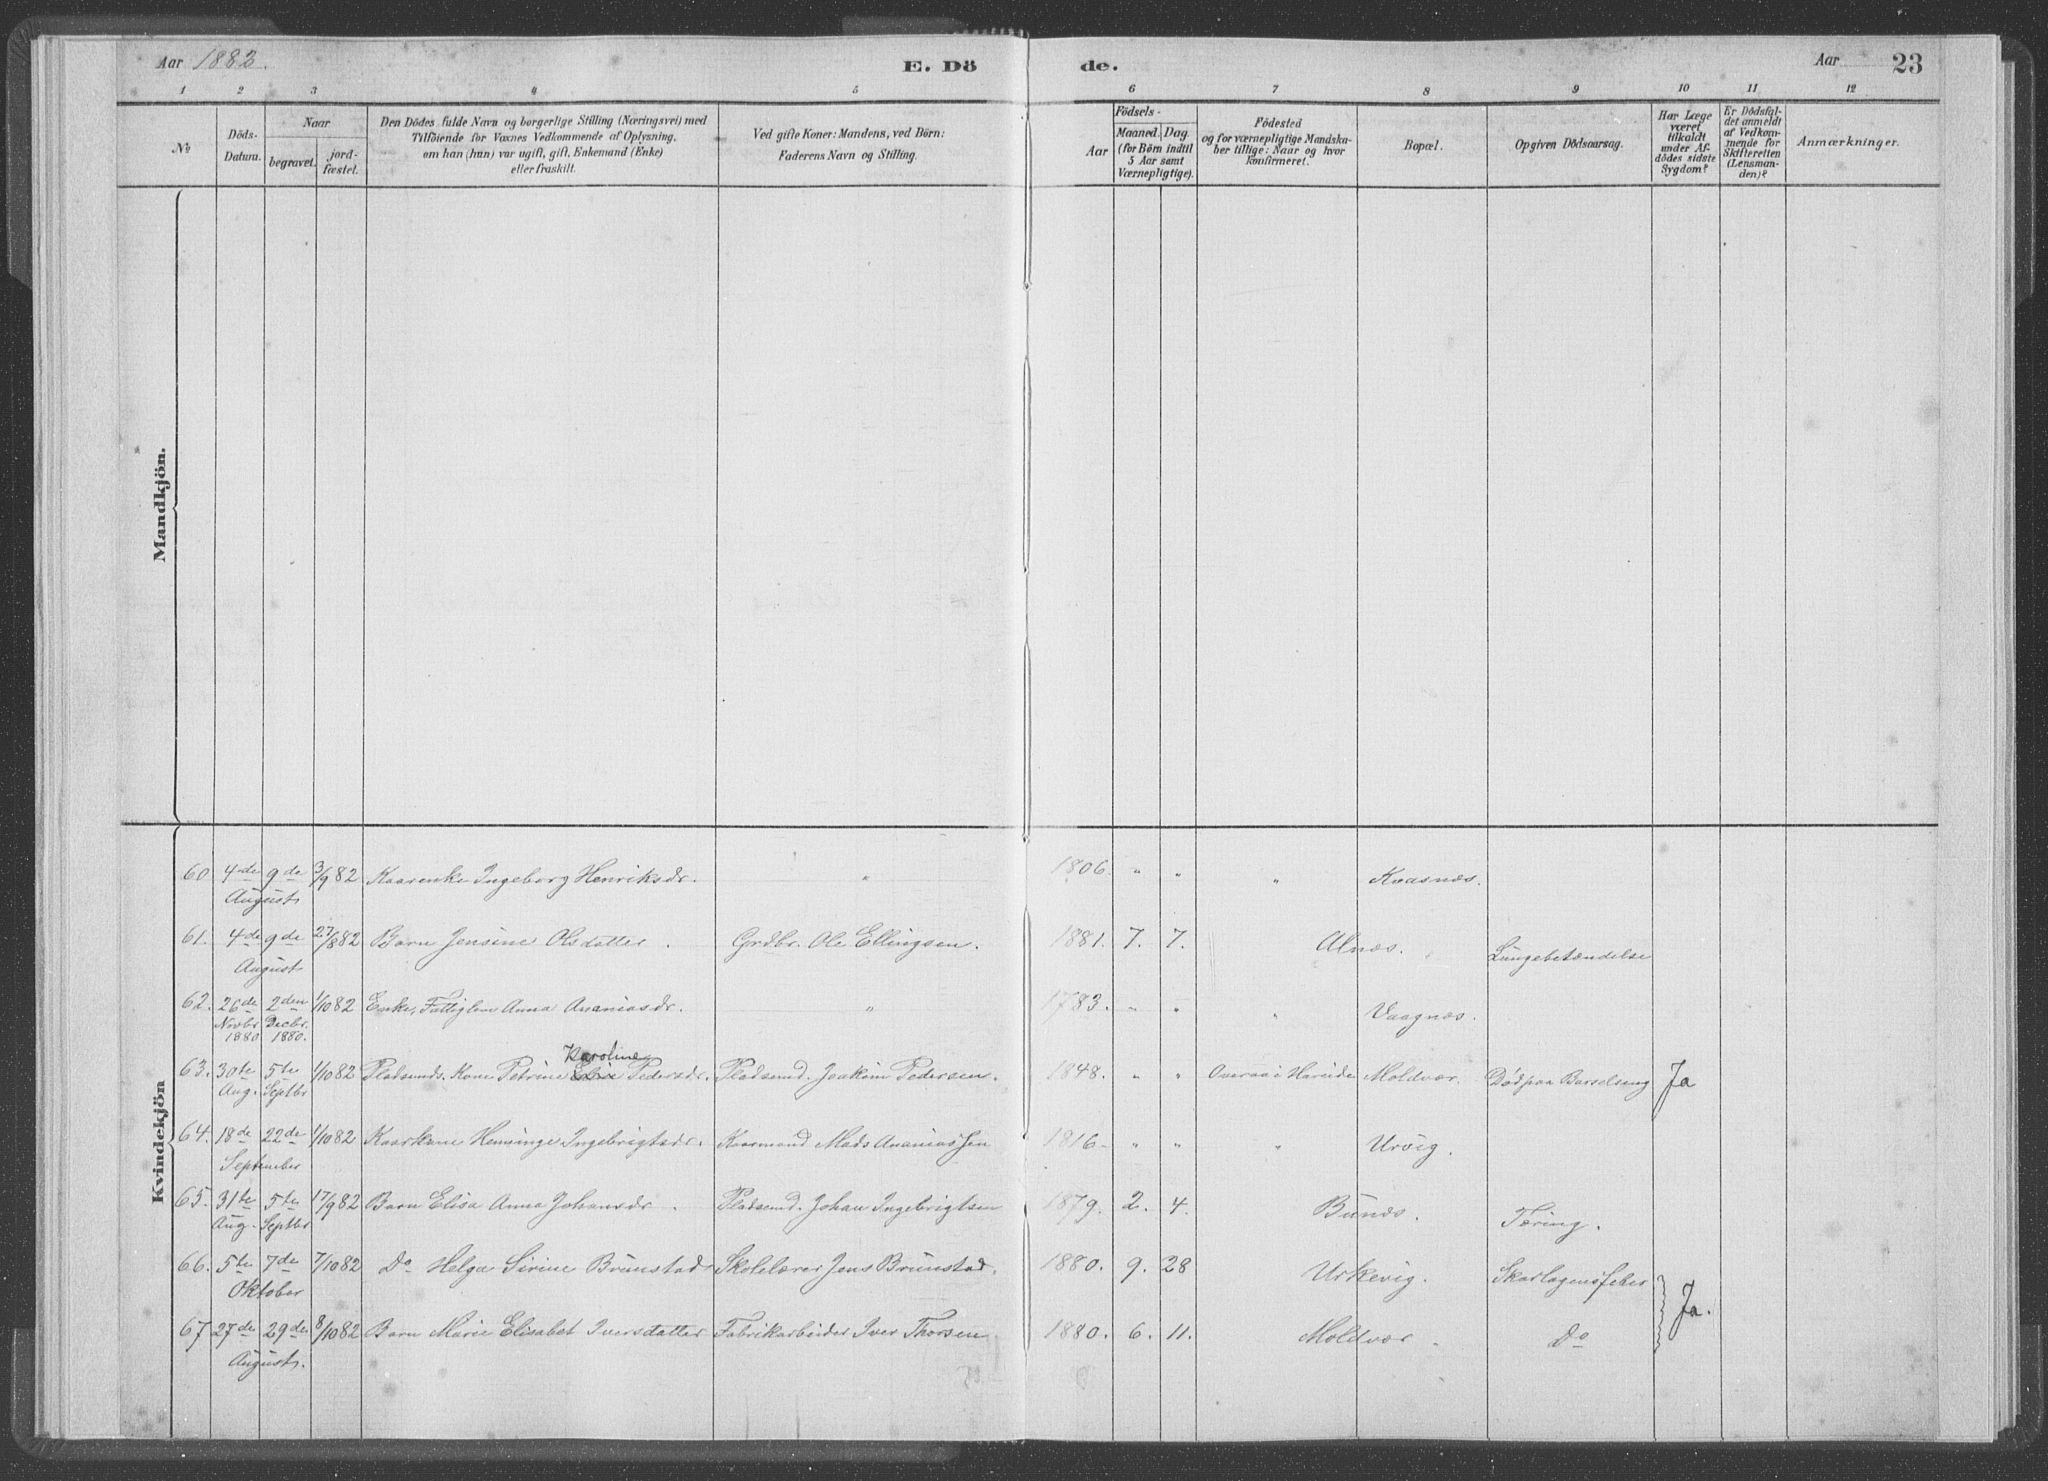 Aar 1882. E. Dö de. Aar 23
1 2 3 4 5 6 7 8 9 10 11 12
No
Döds-Datum.
Naar
begravet. jordfæstet.
Den Dödes fulde Navn og borgerlige Stilling (Næringsvei) med
Tilföiende for Voxnes Vedkommende af Oplysning,
om han (hun) var ugift, gift, Enkemand (Enke)
eller fraskilt.
Ved gifte Koner: Mandens, ved Börn:
Faderens Navn og Stilling.
Födsels-
Aar
Maaned. Dag
(for Börn indtil
5 Aar samt
Værnepligtige).
Födested
og for værnepligtige Mandska-
ber tillige: Naar og hvor
konfirmeret.
Bopæl.
Opgiven Dödsaarsag.
Har Læge
været
tilkaldt
under Af-
dödes sidste
Sygdom?
Er Dödsfal-
det anmeldt
af Vedkom-
mende for
Skifteretten
(Lensman-
den)?
Anmærkninger.
Mandkjön.
Kvindekjön
60 4de 9de 3/9 82 Kaarenke Ingeborg Henriksdr. " 1806. " " " Kvasnæs.
August
61. 4de 9de 27/8 82 Barn Jensine Olsdatter. Grdbr. Ole Ellingsen. 1881. 7. 7. Alnæs. Lungebetændelse
August
62. 26de 2den 1/10 82 Enke, Fattiglem Anna Ananiasdr. " 1783. " " " Vaagnæs.
Novbr. Decbr.
1880 1880.
Karoline
63. 30te 5te 1/10 82 Pladsmds. Kone Petrine Elise Pedersdr. Pladsmd. Joakim Pedersen. 1848. " " Overaa i Hareide Moldvær. Död paa Barselseng Ja
Aug. Septbr
64. 18de 22de 1/10 82 Kaarkone Hensinge Ingebrigtsdr. Kaarmand Mads Ananiassen 1816. " " " Urvig.
September
65. 31te 5te 17/9 82 Barn Elisa Anna Johansdr. Pladsmd. Johan Ingebrigtsen 1879. 2. 4. Bunæs. Tæring.
Aug. Septbr
66. 5te 7de 7/10 82 Do Helga Sirine Brunstad Skolelærer Jens Brunstad. 1880. 9. 28 Urkevig. Skarlagensfeber
Oktober
Ja.
67 27de 29de 8/10 82 Barn Marie Elisabet Iversdatter Fabrikarbeider Iver Thorsen. 1880. 6. 11. Moldvær. Do
August.